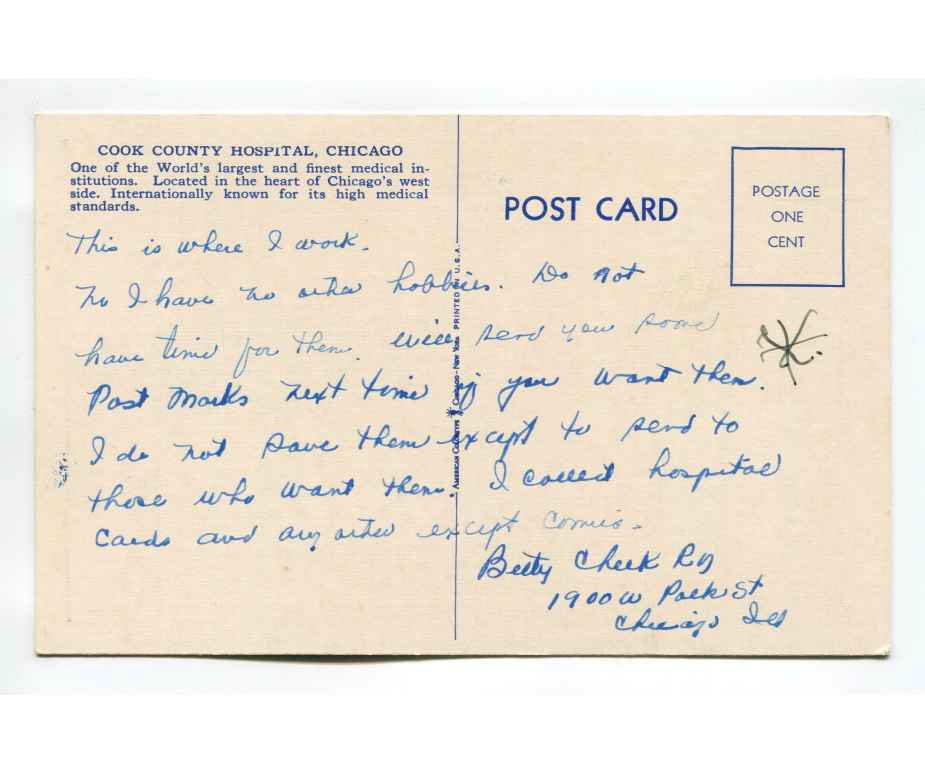 COOK COUNTY HOSPITAL, CHICAGO
One of the World's largest and finest medical in-
stitutions. Located in the heart of Chicago's west
side. Internationally known for its high medical
standards.
POST CARD
POSTAGE
ONE
CENT
AMERICAN COLORTYPE CHICAGO-NEW YORK PRINTED IN U.S.A.
This is where I work.
No I have no other hobbies. Do not
have time for them. Will send you some
Post Marks next time if you want them.
I do not save them except to send to
those who want them. I collect hospital
cards and any other except comic.
Betty Cheek RN
1900 W Polk St
Chicago Ill